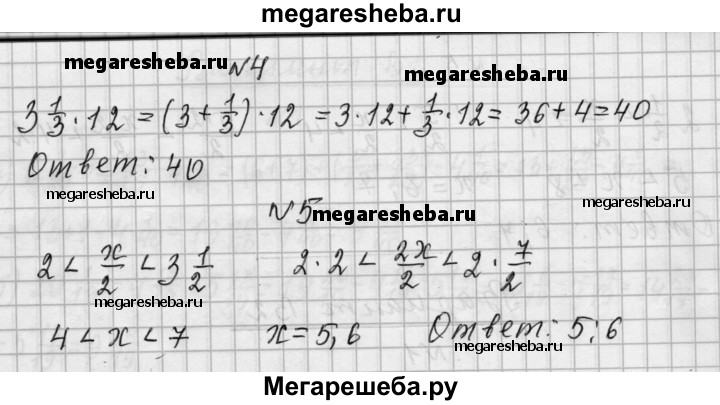 megaresheba.ru
megaresheba.ru №4 megaresheba.ru
3 1/3 · 12 = (3 + 1/3) · 12 = 3 · 12 + 1/3 · 12 = 36 + 4 = 40
Ответ: 40
megaresheba.ru megaresheba.ru
№5 megaresheba.ru
2 < x/2 < 3 1/2 2 · 2 < 2x/2 < 2 · 7/2
megaresheba.ru
4 < x < 7 x = 5; 6 Ответ: 5; 6
megaresheba.ru
Мегарешеба.ру